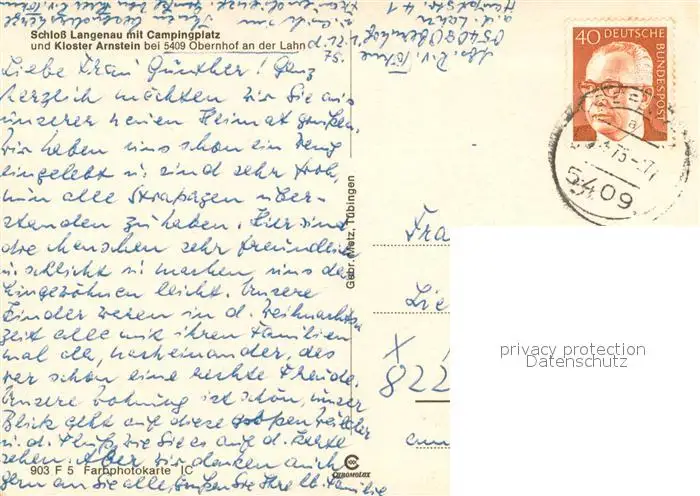 Schloß Langenau mit Campingplatz
und Kloster Arnstein bei 5409 Obernhof an der Lahn
Liebe Frau Günther! Ganz
herzlich möchten wir Sie aus
unserer neuen Heimat grüßen.
Wir haben uns schon ein wenig
eingelebt u. sind sehr froh,
nun alle Strapazen über-
standen zu haben. Hier sind
die Menschen sehr freundlich
u. schlicht u. machen uns das
Eingewöhnen leicht. Unsere
Kinder waren in d. Weihnachts-
zeit alle mit ihren Familien
mal da, nacheinander, das
war schon eine rechte Freude.
Unsere Wohnung ist schön, unser
Blick geht auf diese
u. d. Fluß, wie Sie es auf d. Karte
sehen. Aber wir denken auch
gern an Sie alle, Grüßen Sie Ihre lb. Familie
903 F 5 Farbphotokarte IC
Gebr. Metz, Tübingen
CHROMOLUX
5409 Obernhof
a. d. Lahn
40 DEUTSCHE BUNDESPOST
5409
Fra
Lie
822
privacy protection
Datenschutz